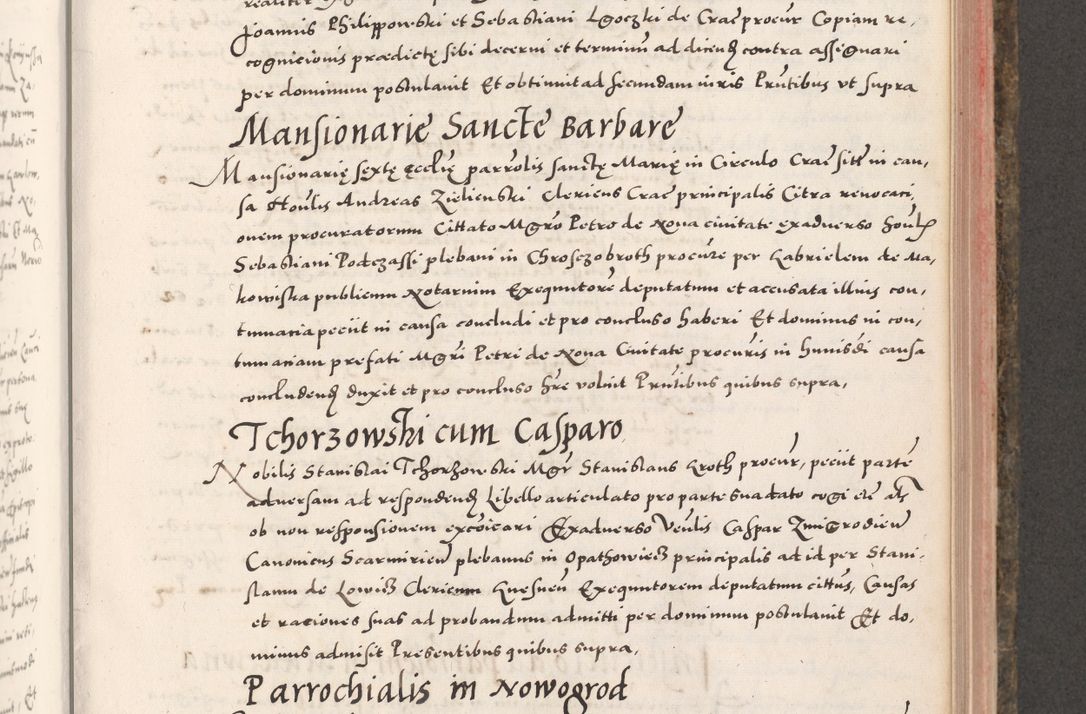 Joannis Philippowski et Sebastiani Lgoczki de Crac procur Copiam re,
cognicionis prædictę sibi decerni et terminũ ad dicendũ contra assignari
per dominum postulavit Et obtinuit ad secundam iuris Pñtibus ut supra
Mansionarie Sancte Barbare
Mansionarię sextę ęcclię parrolis sanctę Marię in Circulo Crac sitę in cau,
sa Honlis Andreas Zielienski Clericus Crac principalis Citra revocaci,
onem procuratorum Cittato Mgro Petro de Nova civitate exadverso honlis
Sebastiani Podczassi plebani in Chroszobroth procure per Gabrielem de Ma,
kowiska publicum Notarium Exequutorẽ deputatum et accusata illius con,
tumacia peciit in causa concludi et pro concluso haberi Et dominus in con,
tumaciam prefati Mgri Petri de Nova Civitate procuris in huiusdi causa
concludendũ duxit et pro concluso hre voluit Pñtibus quibus supra,
Tchorzowski cum Casparo
Nobilis Stanislai Tchorzowski Mgr Stanislaus Groth procur, peciit partẽ
adversam ad respondendũ Libello articulato pro parte sua dato cogi etc als
ob non responsionem excoicari Exadverso Venlis Caspar Zmigrodien
Canonicus Scarmirien plebanus in Opathowiecz principalis ad id per Stani,
slaum de Lowicz Clericum Gnesnen Exequutorem deputatum cittus, Causas
et raciones suas ad probandum admitti per dominum postulavit Et do,
minus admisit Presentibus quibus supra,
Parrochialis in Nowogrod